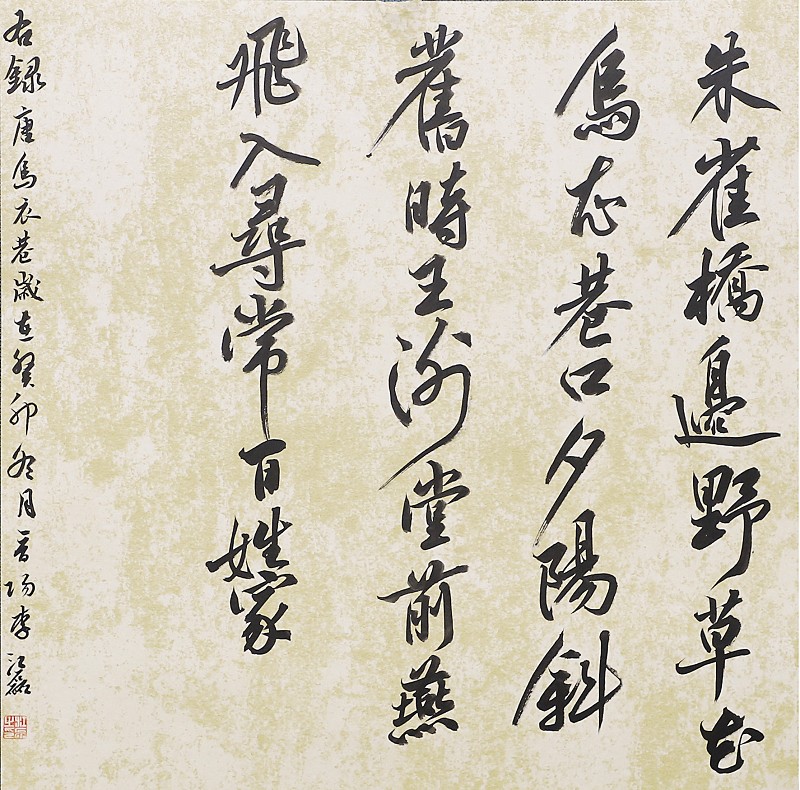 朱雀橋邊野草花
烏衣巷口夕陽斜
舊時王謝堂前燕
飛入尋常百姓家
右録唐烏衣巷歲在癸卯冬月晋陽李江磊